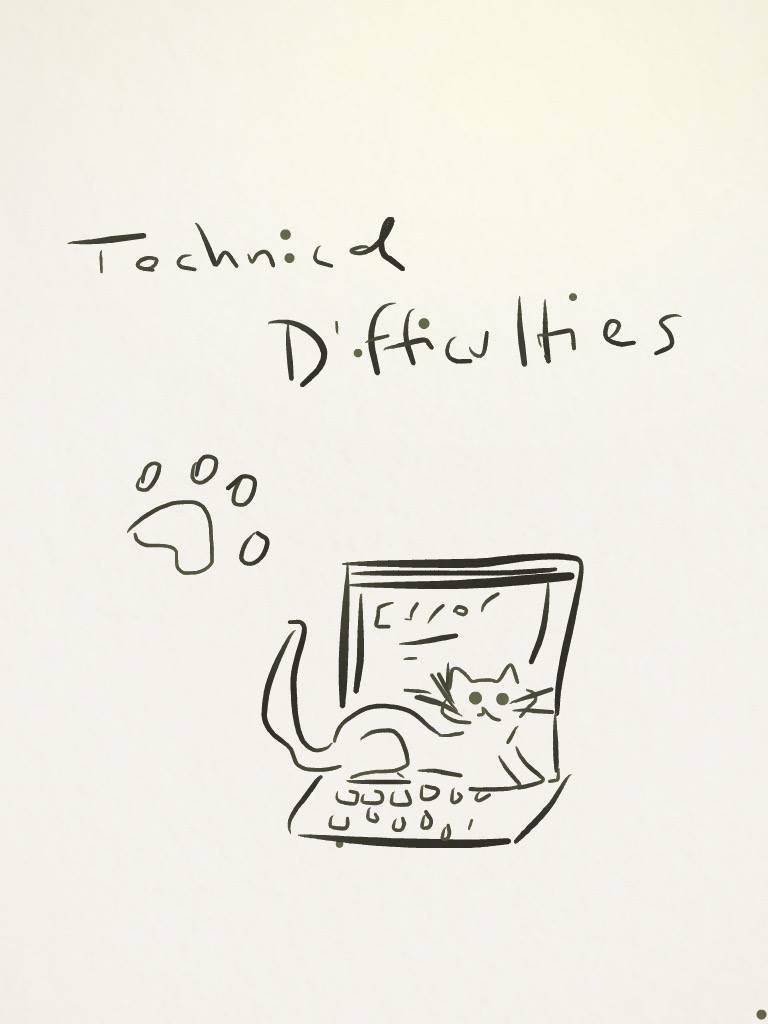 Technical
Difficulties
Error